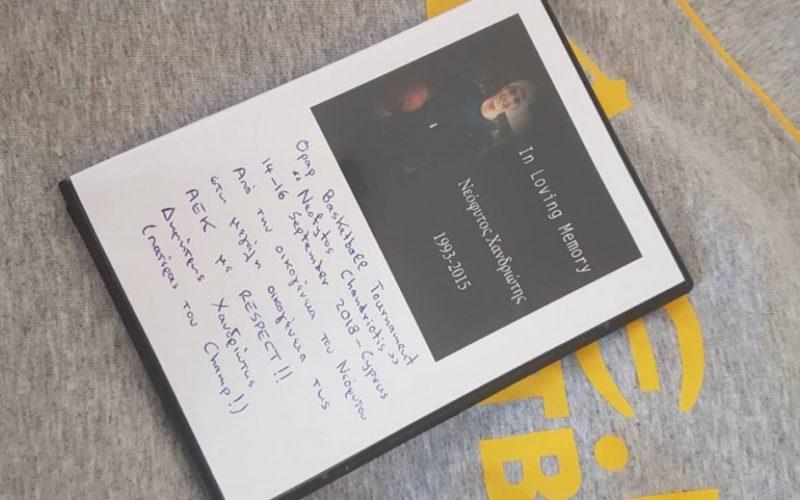 In Loving Memory
Νεόφυτος Χανδριώτης
1993-2015
Opap Basketball Tournament
“Neofytos Chandriotis >>
14-16 September 2018 - Cyprus
Από την οικογένεια του Νεόφυτου
στη μεγάλη οικογένεια της
ΑΕΚ με RESPECT!!
Δημήτρης Χανδριώτης
(πατέρας του Champ!!)
TB